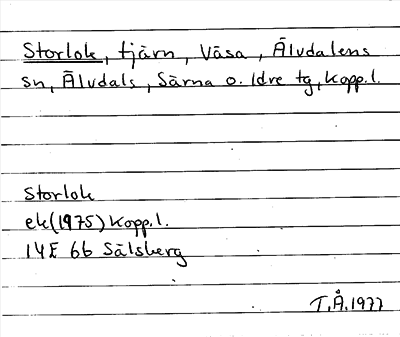 Storlok, tjärn, Våsa, Älvdalens
sn, Älvdals, Särna o. Idre tg, Kopp.l.
Storlok
ek(1975) Kopp.l.
14E 6b Sälsberg
T.Å.1977